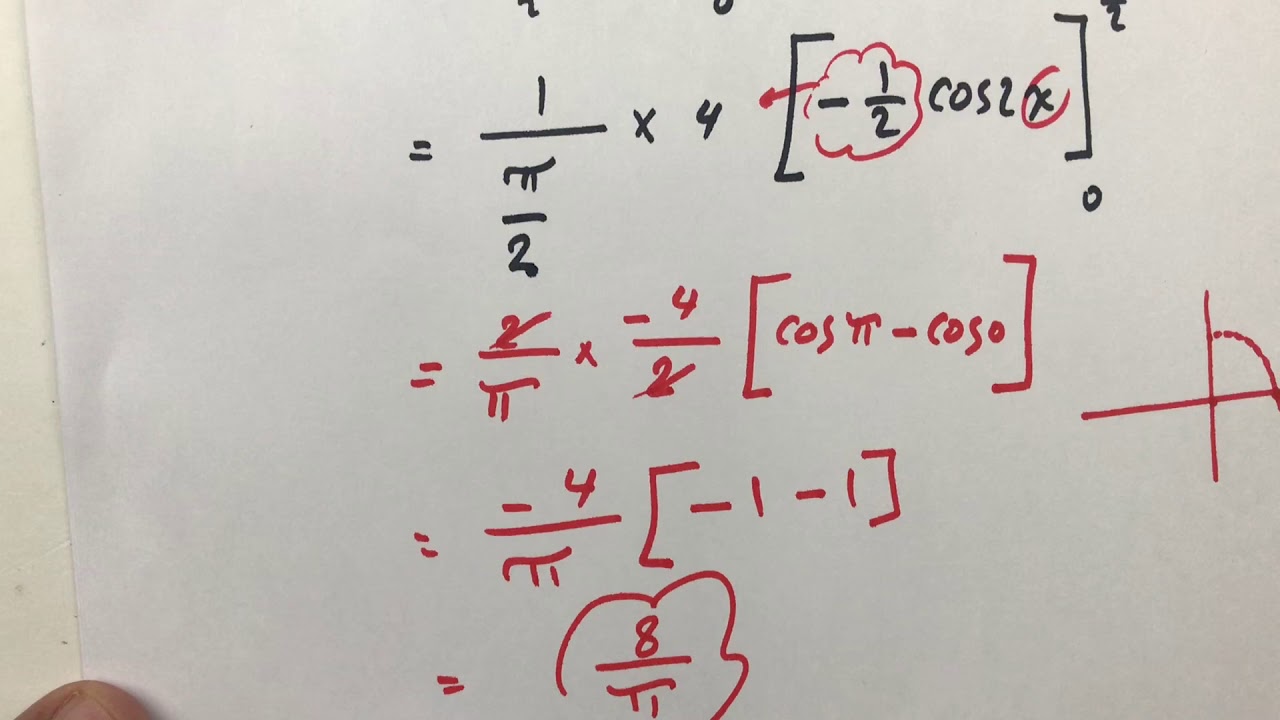 = 1/(π/2) × 4 [-1/2 cos2x]₀
= 2/π × -4/2 [cosπ - cos0]
= -4/π [-1 - 1]
= 8/π